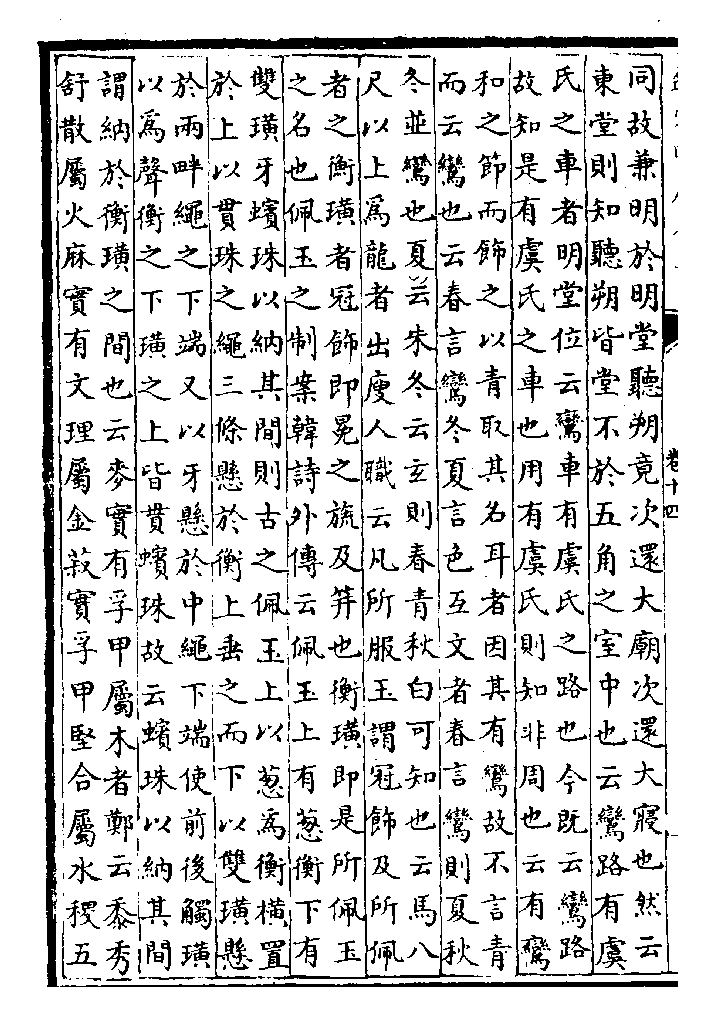 卷十四
同故兼明於明堂聽朔竟次還大廟次還大寢也然云
東堂則知聽朔皆堂不於五角之室中也云鸞路有虞
氏之車者明堂位云鸞車有虞氏之路也今旣云鸞路
故知是有虞氏之車也用有虞氏則知非周也云有鸞
和之節而飾之以青取其名耳者因其有鸞故不言青
而云鸞也云春言鸞冬夏言色互文者春言鸞則夏秋
冬並鸞也夏云朱冬云玄則春青秋白可知也云馬八
尺以上爲龍者出廋人職云凡所服玉謂冠飾及所佩
者之衡璜者冠飾即冕之旒及笄也衡璜即是所佩玉
之名也佩玉之制案韓詩外傳云佩玉上有葱衡下有
雙璜牙蠙珠以納其間則古之佩玉上以葱爲衡橫置
於上以貫珠之繩三條懸於衡上垂之而下以雙璜懸
於兩畔繩之下端又以牙懸於中繩下端使前後觸璜
以爲聲衡之下璜之上皆貫蠙珠故云蠙珠以納其間
謂納於衡璜之間也云麥實有孚甲屬木者鄭云黍秀
舒散屬火麻實有文理屬金菽實孚甲堅合屬水稷五